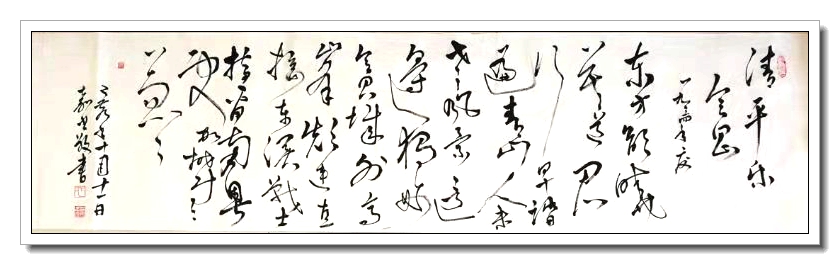 清平乐
会昌
一九三四年夏
东方欲晓
莫道君
行早踏
遍青山人未
老风景这
边独好
会昌城外高
峰颠连直
接东溟战士
指看南粤
更加郁々
葱々
年十月十一日
敬书